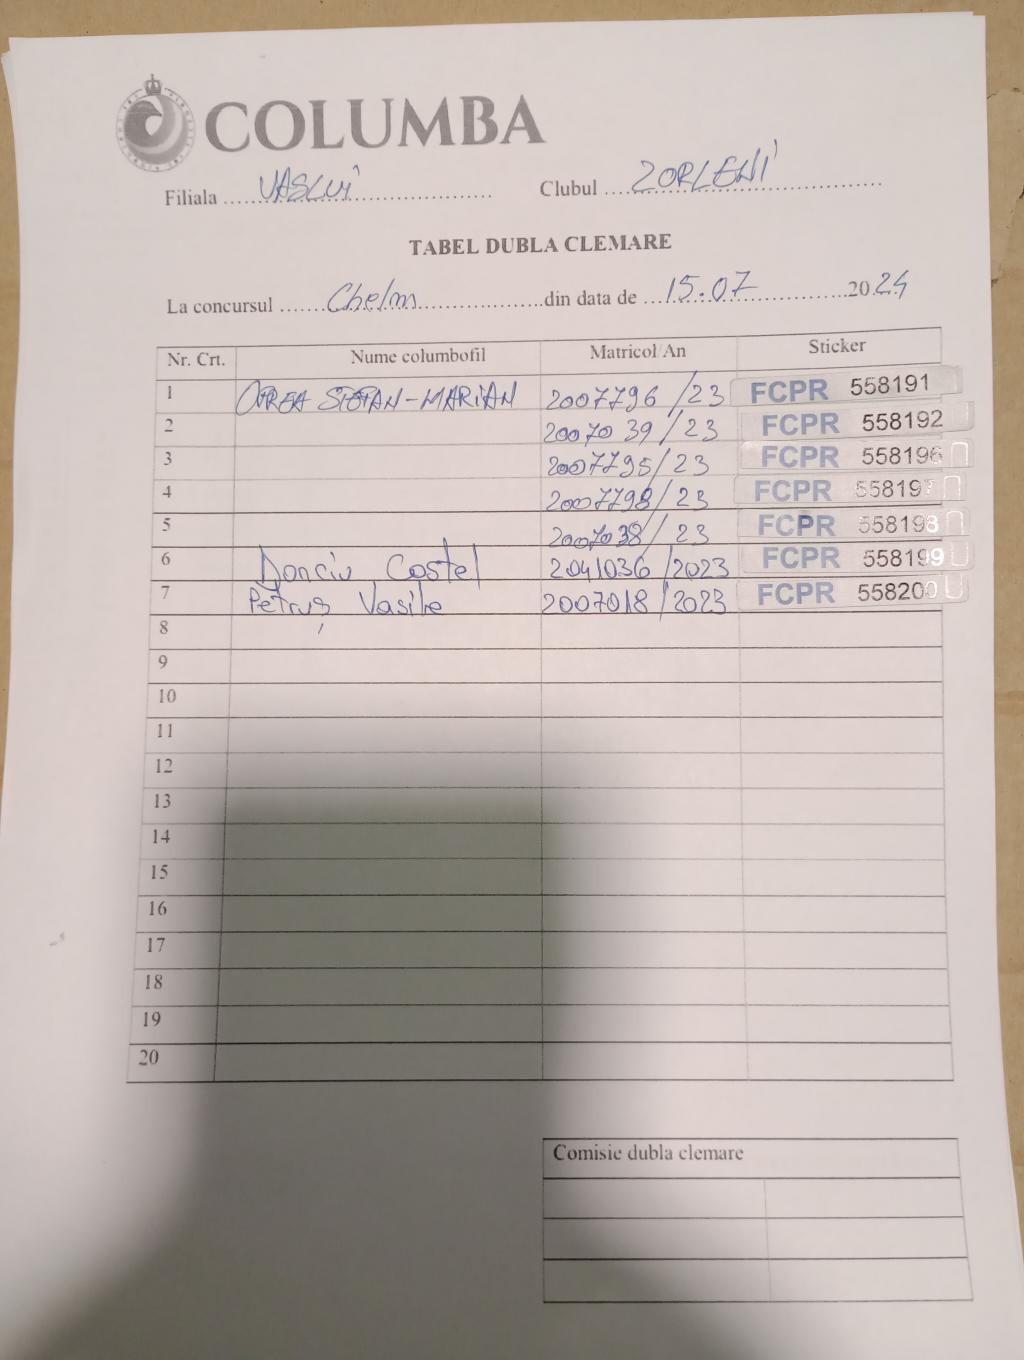 COLUMBA
Filiala ........ VASLUI ........ Clubul ........ ZORLENI ........
TABEL DUBLA CLEMARE
La concursul ........ Chelm ........ din data de ........ 15.07 ........ 2024
Nr. Crt. Nume columbofil Matricol/An Sticker
1 STEFAN-MARIAN 2007796 /23 FCPR 558191
2 2007039 /23 FCPR 558192
3 2007795/23 FCPR 558196
4 2007798/23 FCPR 558197
5 2007038/23 FCPR 558198
6 Donciu Costel 2041036 /2023 FCPR 558199
7 Petruș Vasile 2007018/2023 FCPR 558200
8
9
10
11
12
13
14
15
16
17
18
19
20
Comisie dubla clemare